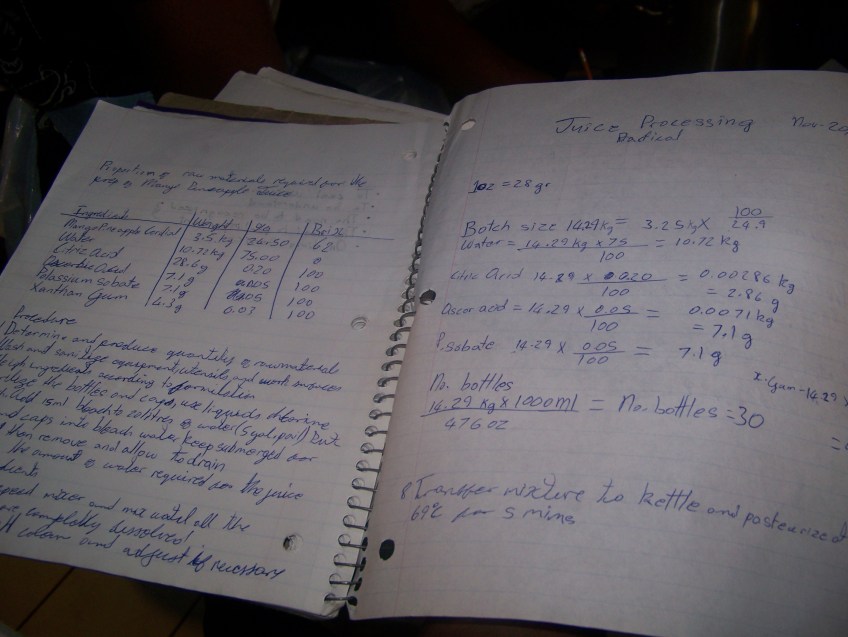 Proportion of raw materials required for the
prep of Mango Pineapple Juice
Ingredients Weight % Brix
Mango Pineapple Cordial 3.5 kg 24.50 62
Water 10.72 kg 75.00 0
Citric Acid 28.6 g 0.20 100
Ascorbic Acid 7.1 g 0.05 100
Potassium Sobate 7.1 g 0.05 100
Xanthan Gum 4.3 g 0.03 100
Procedure
Determine and produce quantities of raw materials
Wash and sanitize equipment, utensils and work surfaces
Weigh ingredients according to formulation
the bottles and caps, use liquids chlorine
Add 15ml bleach to 20 litres of water (5 gal. pail) Put
and caps into bleach water, keep submerged for
then remove and allow to drain
the amount of water required for the juice
speed mixer and mix until all the
are completely dissolved
and adjust if necessary
Juice Processing Nov-20
Radical
1oz = 28 gr
Batch size 14.29 kg = 3.25 kg X 100
24.9
Water = 14.29 kg x 75 = 10.72 kg
100
Citric Acid 14.29 x 0.020 = 0.00286 kg
100 = 2.86 g
Ascor acid = 14.29 x 0.05 = 0.0071 kg
100 = 7.1 g
P. sobate 14.29 x 0.05 = 7.1 g
100
x. Gum - 14.29 x
No. bottles
14.29 kg x 1000 ml = No. bottles = 30
476 oz
8 Transfer mixture to kettle and pasteurize at
69°C for 5 mins